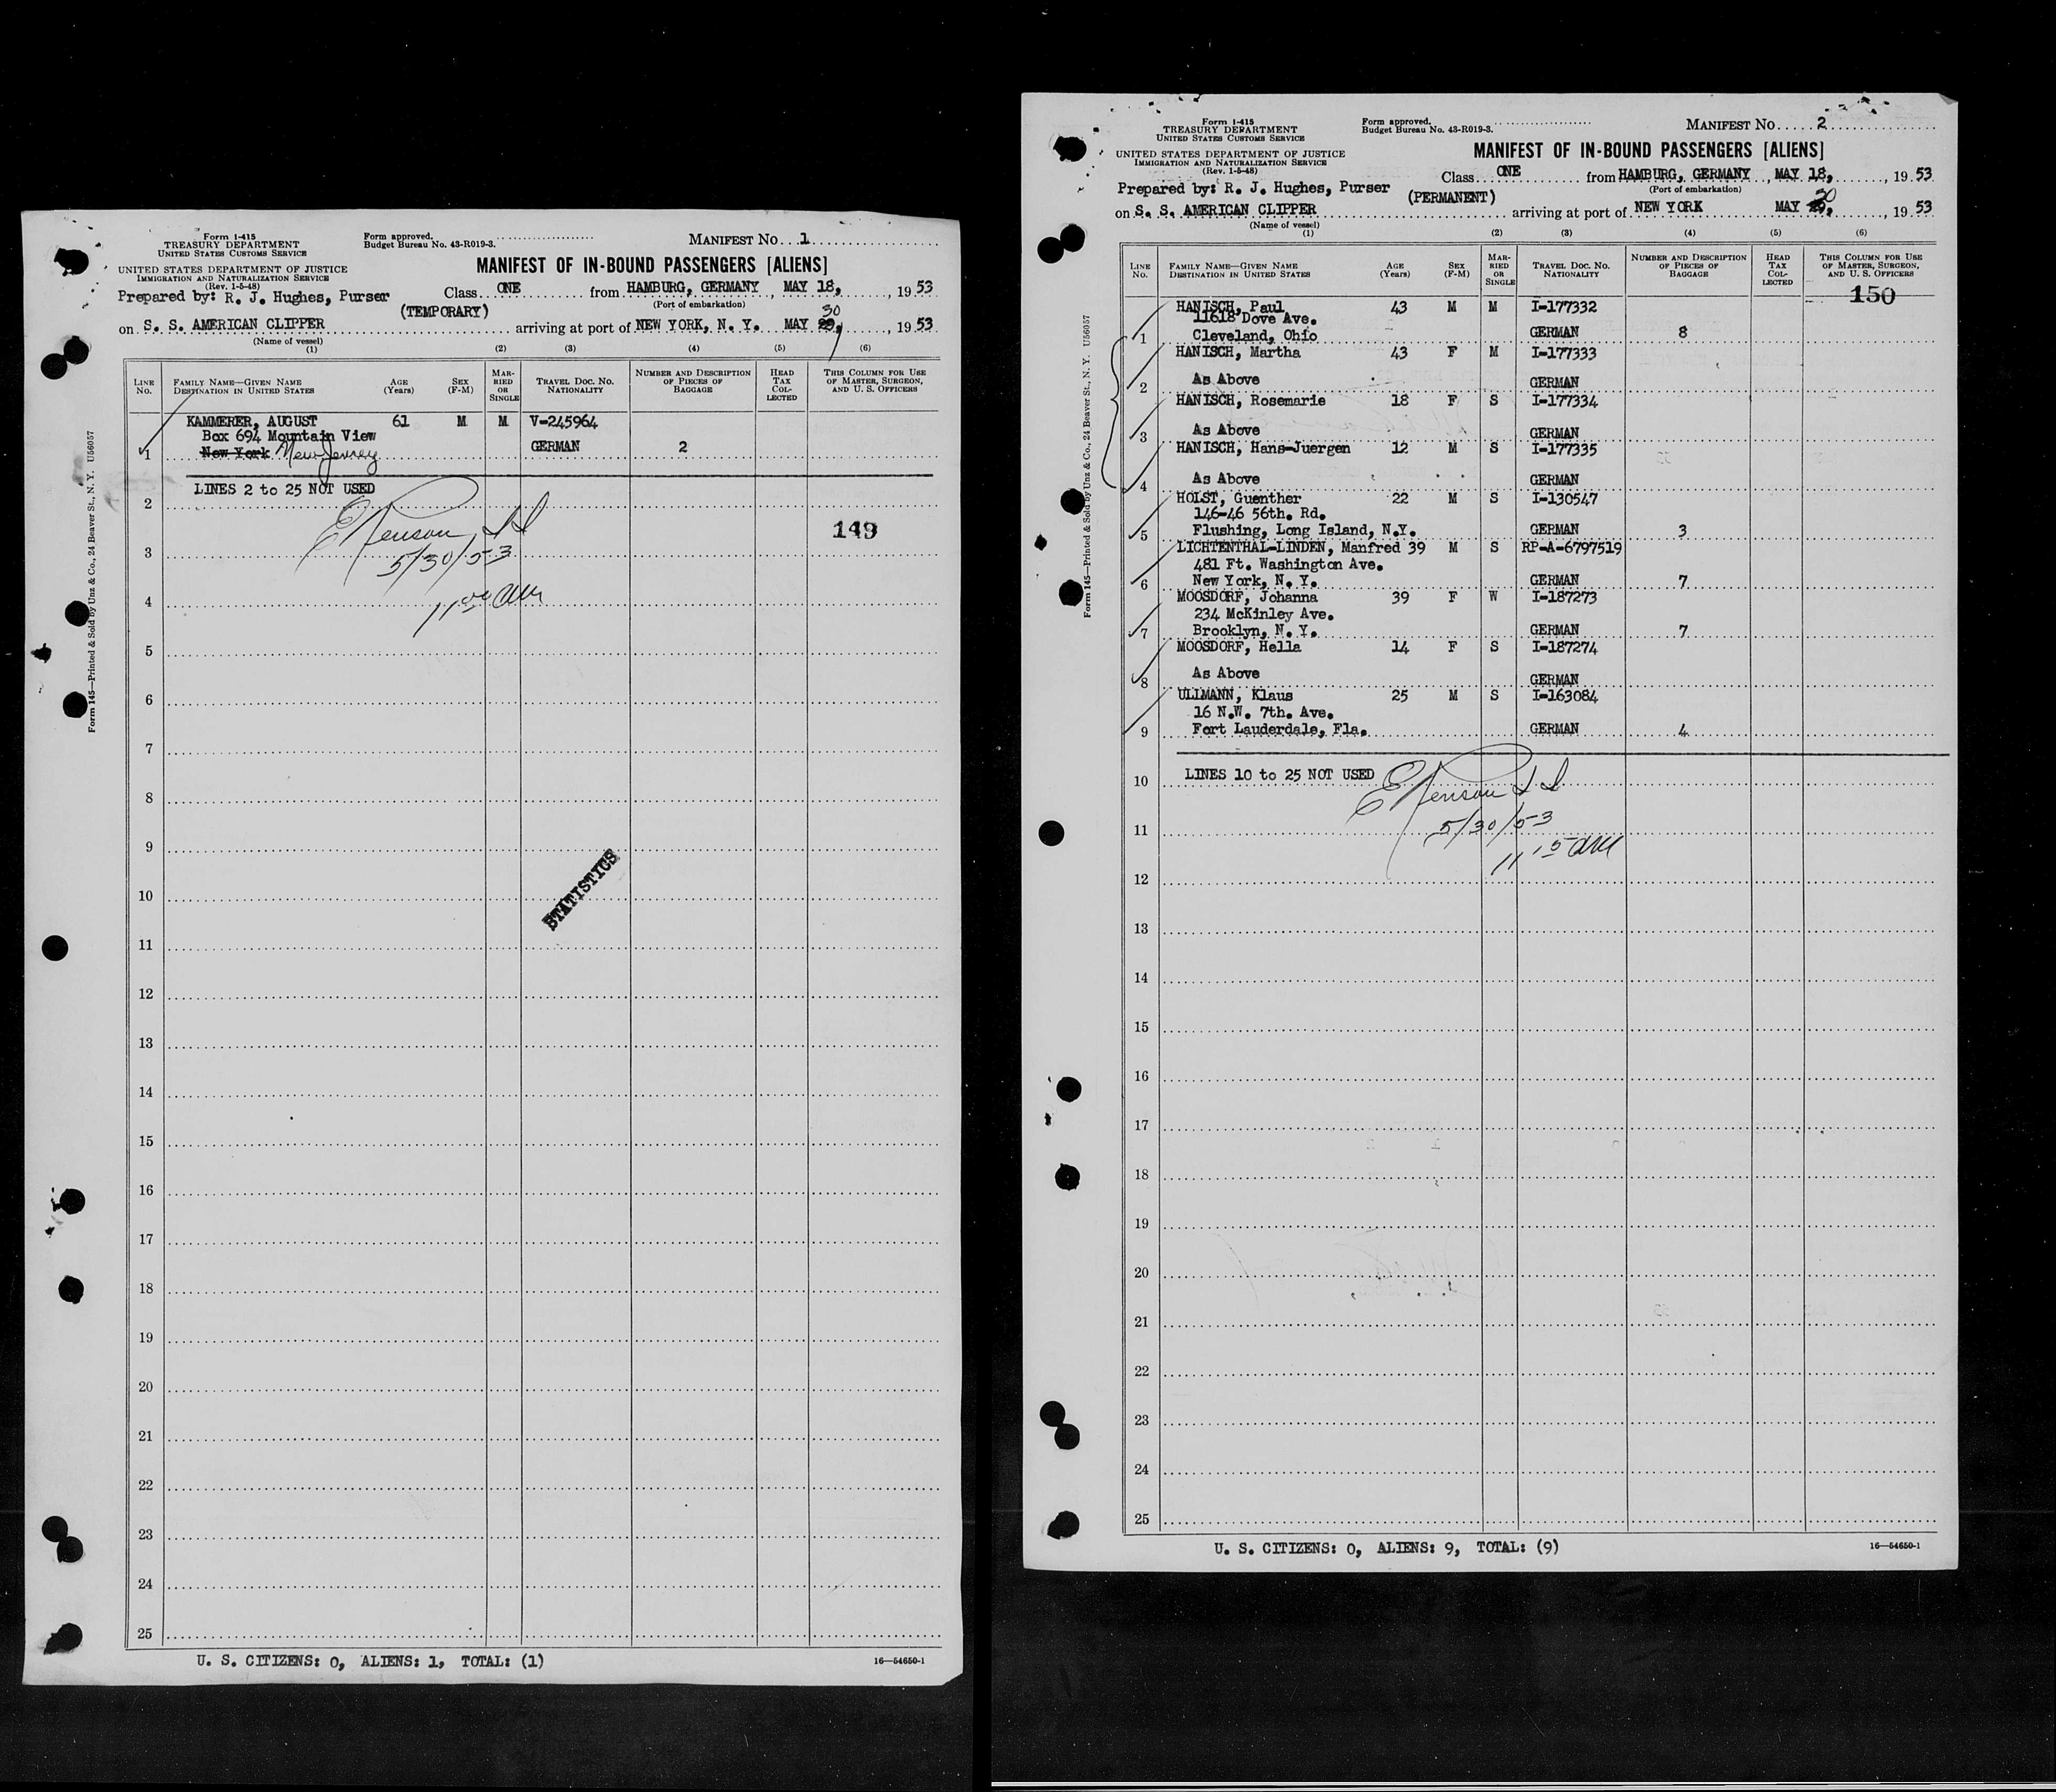 Form I-415
TREASURY DEPARTMENT
UNITED STATES CUSTOMS SERVICE
Form approved.
Budget Bureau No. 43-R019-3.
MANIFEST No. 1
UNITED STATES DEPARTMENT OF JUSTICE
IMMIGRATION AND NATURALIZATION SERVICE
(Rev. 1-5-48)
MANIFEST OF IN-BOUND PASSENGERS [ALIENS]
Prepared by: R. J. Hughes, Purser
Class ONE from HAMBURG, GERMANY, MAY 18, 1953
(TEMPORARY)
(Port of embarkation)
30
on S. S. AMERICAN CLIPPER arriving at port of NEW YORK, N. Y. MAY 29, 1953
(Name of vessel)
(1) (2) (3) (4) (5) (6)
LINE No.
FAMILY NAME—GIVEN NAME
DESTINATION IN UNITED STATES
AGE (Years)
SEX (F-M)
MARRIED OR SINGLE
TRAVEL DOC. NO. NATIONALITY
NUMBER AND DESCRIPTION OF PIECES OF BAGGAGE
HEAD TAX COLLECTED
THIS COLUMN FOR USE OF MASTER, SURGEON, AND U. S. OFFICERS
KAMMERER, AUGUST 61 M M V-245964
Box 694 Mountain View
1 New York New Jersey GERMAN 2
LINES 2 to 25 NOT USED
2
149
3
5/30/53
4
11 00 AM
5
6
7
8
9
STATISTICS
10
11
12
13
14
15
16
17
18
19
20
21
22
23
24
25
U. S. CITIZENS: 0, ALIENS: 1, TOTAL: (1)
16—54650-1
Form 145—Printed & Sold by Unz & Co., 24 Beaver St., N. Y. U56057
Form I-415
TREASURY DEPARTMENT
UNITED STATES CUSTOMS SERVICE
Form approved.
Budget Bureau No. 43-R019-3.
MANIFEST No. 2
UNITED STATES DEPARTMENT OF JUSTICE
IMMIGRATION AND NATURALIZATION SERVICE
(Rev. 1-5-48)
MANIFEST OF IN-BOUND PASSENGERS [ALIENS]
Prepared by: R. J. Hughes, Purser
Class ONE from HAMBURG, GERMANY, MAY 18, 1953
(PERMANENT)
(Port of embarkation)
30
on S. S. AMERICAN CLIPPER arriving at port of NEW YORK MAY 29, 1953
(Name of vessel)
(1) (2) (3) (4) (5) (6)
LINE No.
FAMILY NAME—GIVEN NAME
DESTINATION IN UNITED STATES
AGE (Years)
SEX (F-M)
MARRIED OR SINGLE
TRAVEL DOC. NO. NATIONALITY
NUMBER AND DESCRIPTION OF PIECES OF BAGGAGE
HEAD TAX COLLECTED
THIS COLUMN FOR USE OF MASTER, SURGEON, AND U. S. OFFICERS
150
HANISCH, Paul 43 M M I-177332
11618 Dove Ave.
1 Cleveland, Ohio GERMAN 8
HANISCH, Martha 43 F M I-177333
2 As Above GERMAN
HANISCH, Rosemarie 18 F S I-177334
3 As Above GERMAN
HANISCH, Hans-Juergen 12 M S I-177335
4 As Above GERMAN
HOLST, Guenther 22 M S I-130547
146-46 56th. Rd.
5 Flushing, Long Island, N.Y. GERMAN 3
LICHTENTHAL-LINDEN, Manfred 39 M S RP-A-6797519
481 Ft. Washington Ave.
6 New York, N. Y. GERMAN 7
MOOSDORF, Johanna 39 F W I-187273
234 McKinley Ave.
7 Brooklyn, N. Y. GERMAN 7
MOOSDORF, Hella 14 F S I-187274
8 As Above GERMAN
ULLMANN, Klaus 25 M S I-163084
16 N.W. 7th. Ave.
9 Fort Lauderdale, Fla. GERMAN 4
10 LINES 10 to 25 NOT USED
5/30/53
11
11 15 AM
12
13
14
15
16
17
18
19
20
21
22
23
24
25
U. S. CITIZENS: 0, ALIENS: 9, TOTAL: (9)
16—54650-1
Form 145—Printed & Sold by Unz & Co., 24 Beaver St., N. Y. U56057